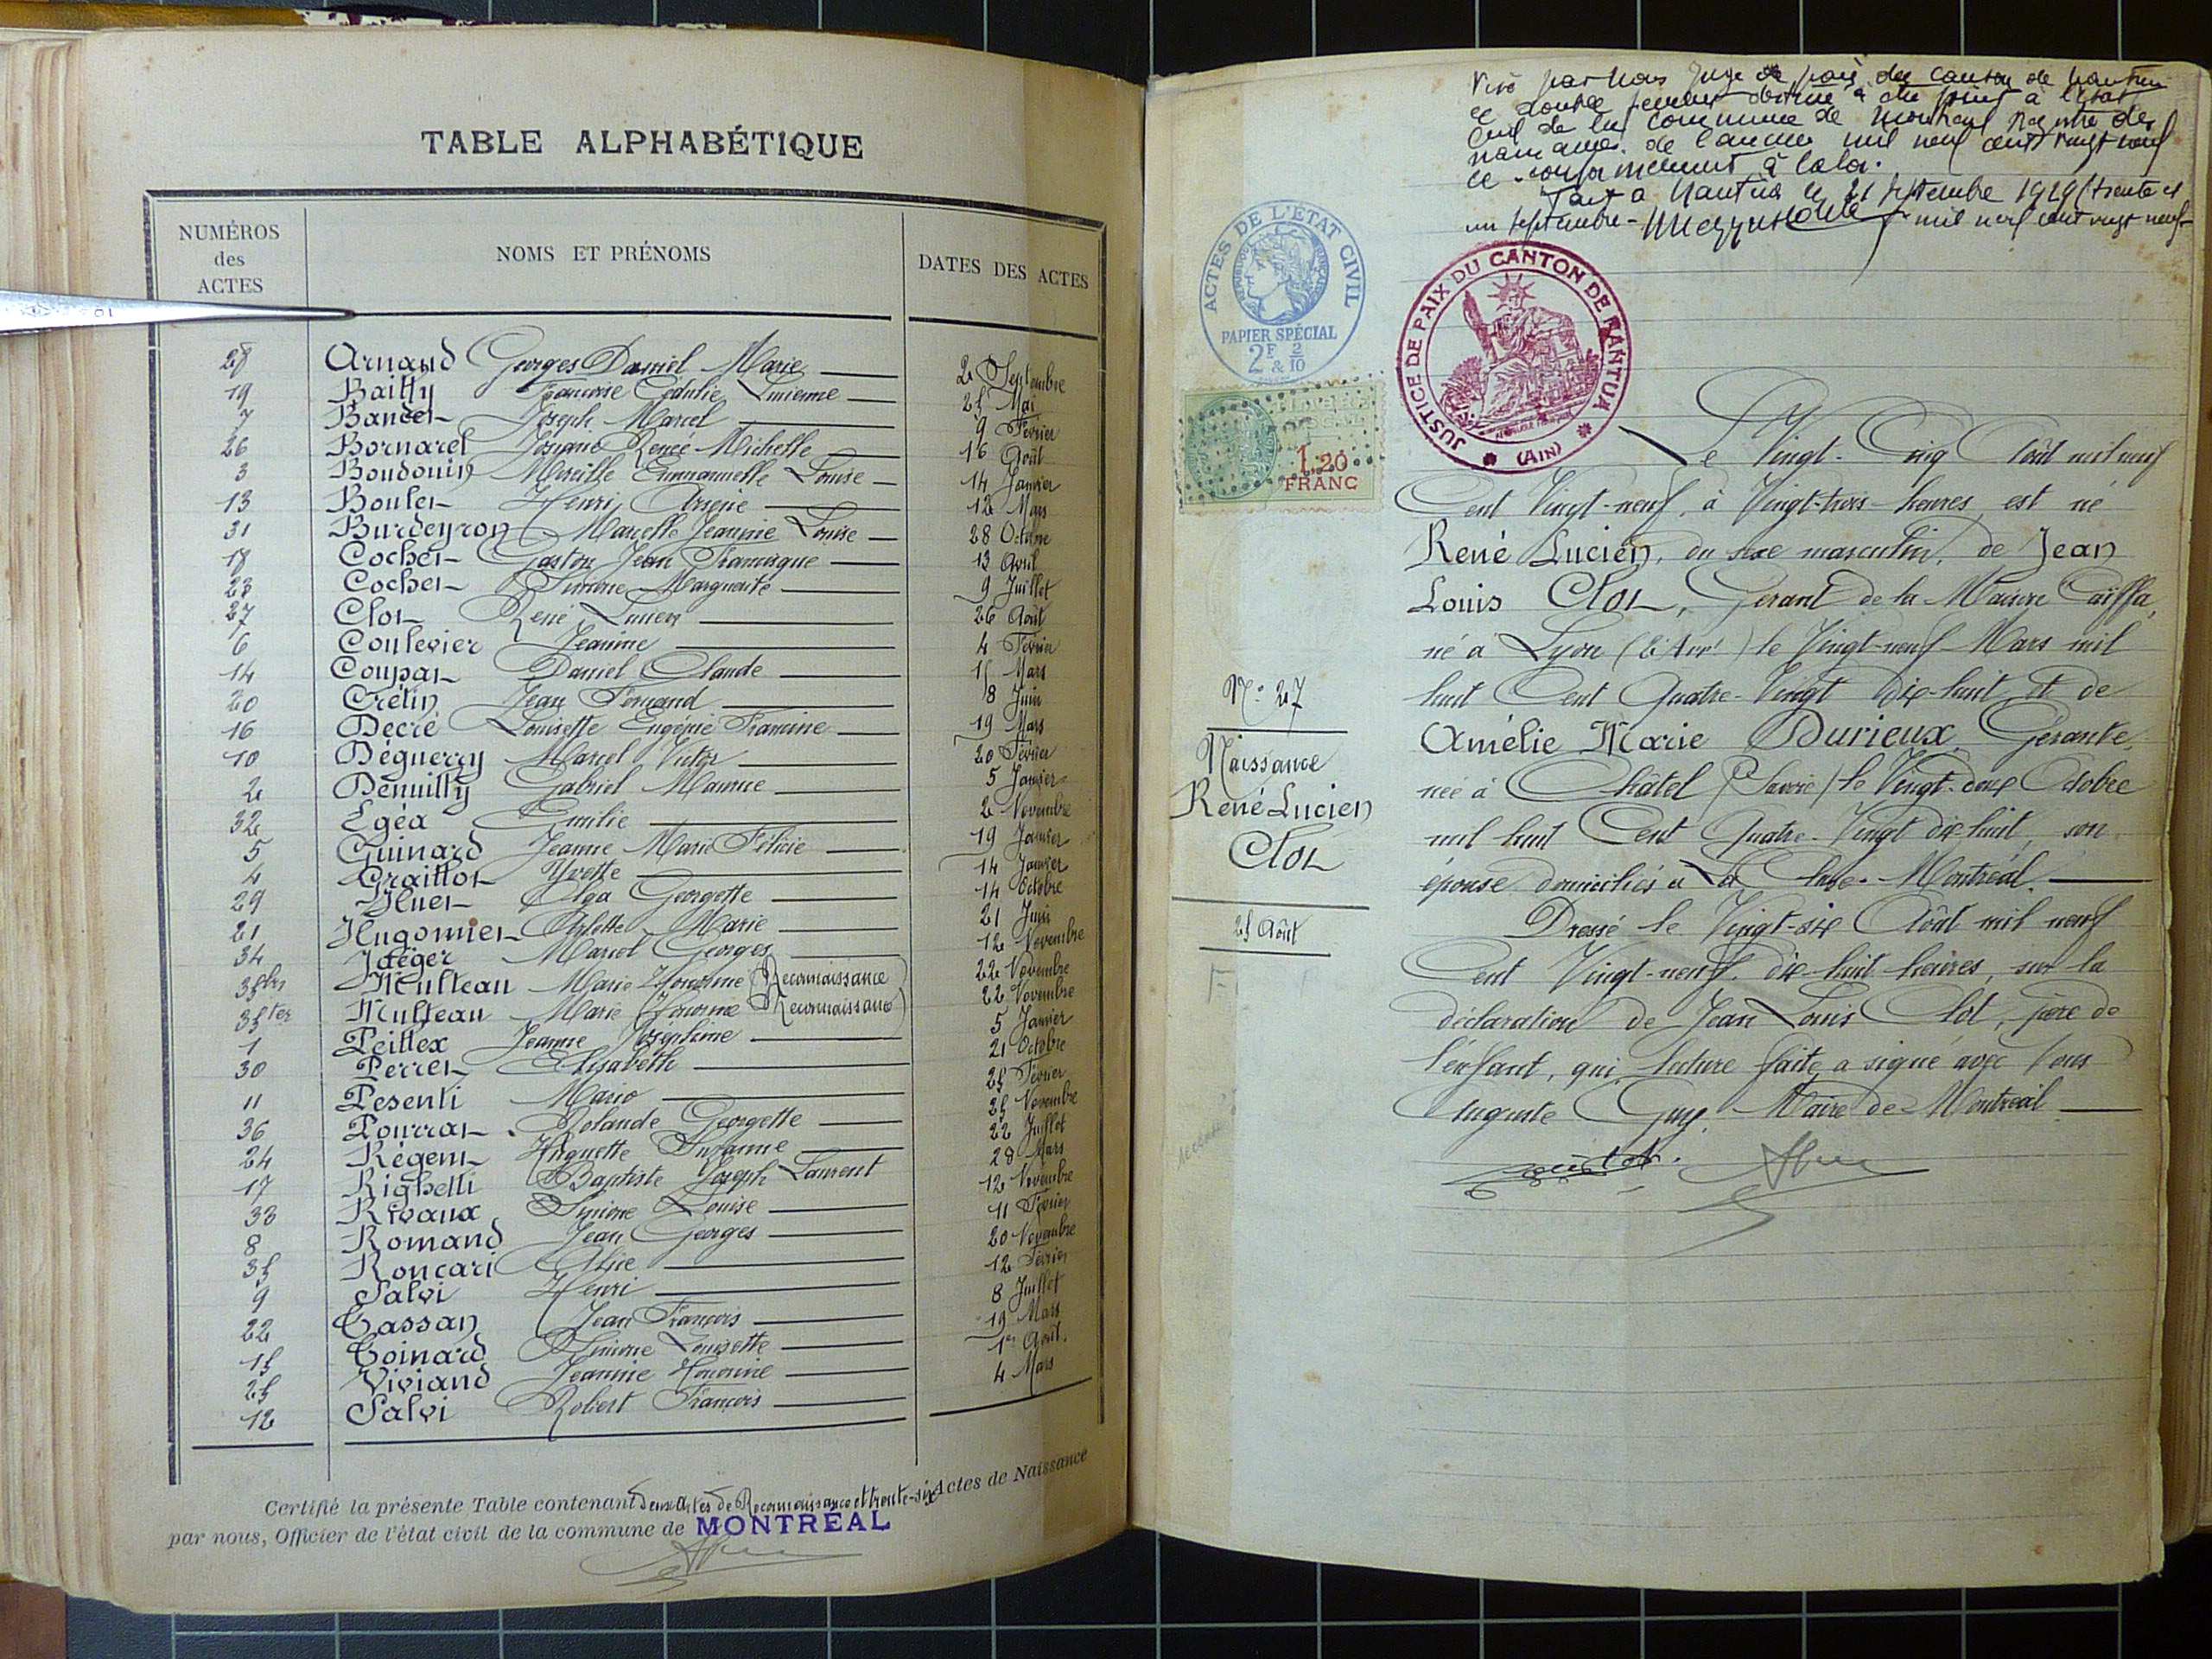 TABLE ALPHABÉTIQUE
NUMÉROS
des
ACTES
NOMS ET PRÉNOMS
DATES DES ACTES
28 Arnaud Georges Daniel Marie 2 Septembre
19 Bailly Lucienne 25 Mai
7 Joseph Marcel 9 Février
26 Bornarel Josiane Renée Michelle 16 Août
3 Boudouin Mireille Emmanuelle Louise 14 Janvier
13 Boulet Henri Arsène 12 Mars
31 Burdeyron Marcelle Jeannine Louise 28 Octobre
18 Cochet Gaston Jean Francisque 13 Avril
23 Cochet Simone Marguerite 9 Juillet
27 Clot René Lucien 26 Août
6 Coulevier Jeanine 4 Février
14 Coupat Daniel Claude 15 Mars
20 Crétin Jean Fernand 8 Juin
16 Decré Louisette Eugénie Francine 19 Mars
10 Déguerry Marcel Victor 20 Février
2 Denuilly Gabriel Maurice 5 Janvier
32 Egéa Emilie 2 Novembre
5 Guinard Jeanne Marie Félicie 19 Janvier
4 Graillot Yvette 14 Janvier
29 Huet Olga Georgette 14 Octobre
21 Hugonnet Arlette Marie 21 Juin
34 Jaeger Marcel Georges 12 Novembre
35 bis Multeau Marie Honorine (Reconnaissance) 22 Novembre
35 ter Multeau Marie Honorine (Reconnaissance) 22 Novembre
1 Peillex Jeanne Joséphine 5 Janvier
30 Perret Elisabeth 21 Octobre
11 Pesenti Mario 25 Février
36 Pourrat Rolande Georgette 25 Novembre
24 Régent Huguette Suzanne 22 Juillet
17 Righetti Baptiste Joseph Laurent 28 Mars
33 Rivaux Simone Louise 12 Novembre
8 Romand Jean Georges 11 Février
35 Roncari Alice 20 Novembre
9 Salvi Henri 12 Février
22 Cassan Jean François 8 Juillet
15 Coinard Simone Louisette 19 Mars
25 Viviand Jeannine Honorine 1er Août
12 Salvi Robert François 4 Mars
Certifié la présente Table contenant deux actes de Reconnaissance et trente-six Actes de Naissance
par nous, Officier de l'état civil de la commune de MONTRÉAL
Visé par Nous Juge de paix du canton de Nantua
le double
civil de la commune de Montréal Registre des
naissances de l'année mil neuf cent vingt neuf
ce conformément à la loi.
Fait à Nantua le 21 Septembre 1929 (trente et
un septembre mil neuf cent vingt neuf
ACTES DE L'ÉTAT CIVIL
RÉPUBLIQUE FRANÇAISE
PAPIER SPÉCIAL
2F & 2/10
1.20
FRANC
JUSTICE DE PAIX DU CANTON DE NANTUA
(AIN)
N° 27
Naissance
René Lucien
Clot
25 Août
Le Vingt-Cinq Août mil neuf
Cent Vingt-neuf, à Vingt-trois heures, est né
René Lucien, du sexe masculin, de Jean
Louis Clot, Gérant de la Maison Caïffa,
né à Lyon (6e Arrt) le Vingt-neuf Mars mil
huit Cent Quatre-Vingt dix-huit, et de
Amélie Marie Durieux, Gérante,
née à Châtel (Savoie) le Vingt-deux Octobre
mil huit Cent Quatre-Vingt dix-huit, son
épouse domiciliés à La Cluse-Montréal.
Dressé le Vingt-six Août mil neuf
Cent Vingt-neuf, dix-huit heures, sur la
déclaration de Jean Louis Clot, père de
l'enfant, qui, lecture faite, a signé avec Nous
Auguste Guy, Maire de Montréal